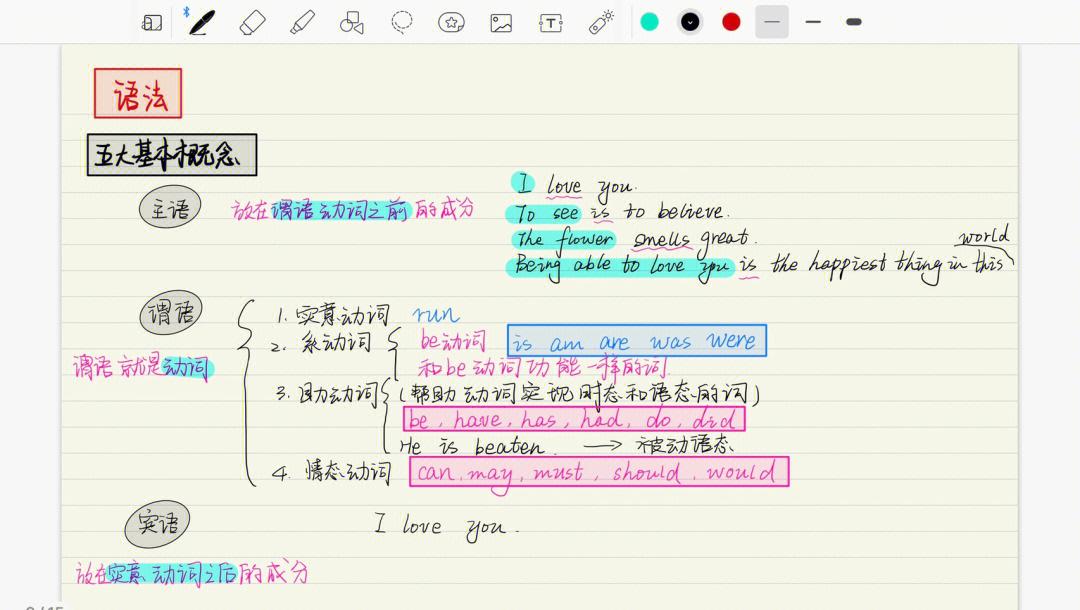 语法
五大基本概念
主语 放在谓语动词之前的成分
I love you.
To see is to believe.
The flower smells great.
Being able to love you is the happiest thing in this world
谓语
谓语就是动词
1. 实意动词 run
2. 系动词 be动词 is am are was were
和be动词功能一样的词
3. 助动词 (帮助动词实现时态和语态的词)
be, have, has, had, do, did
He is beaten. → 被动语态
4. 情态动词 can, may, must, should, would
宾语 I love you.
放在实意动词之后的成分